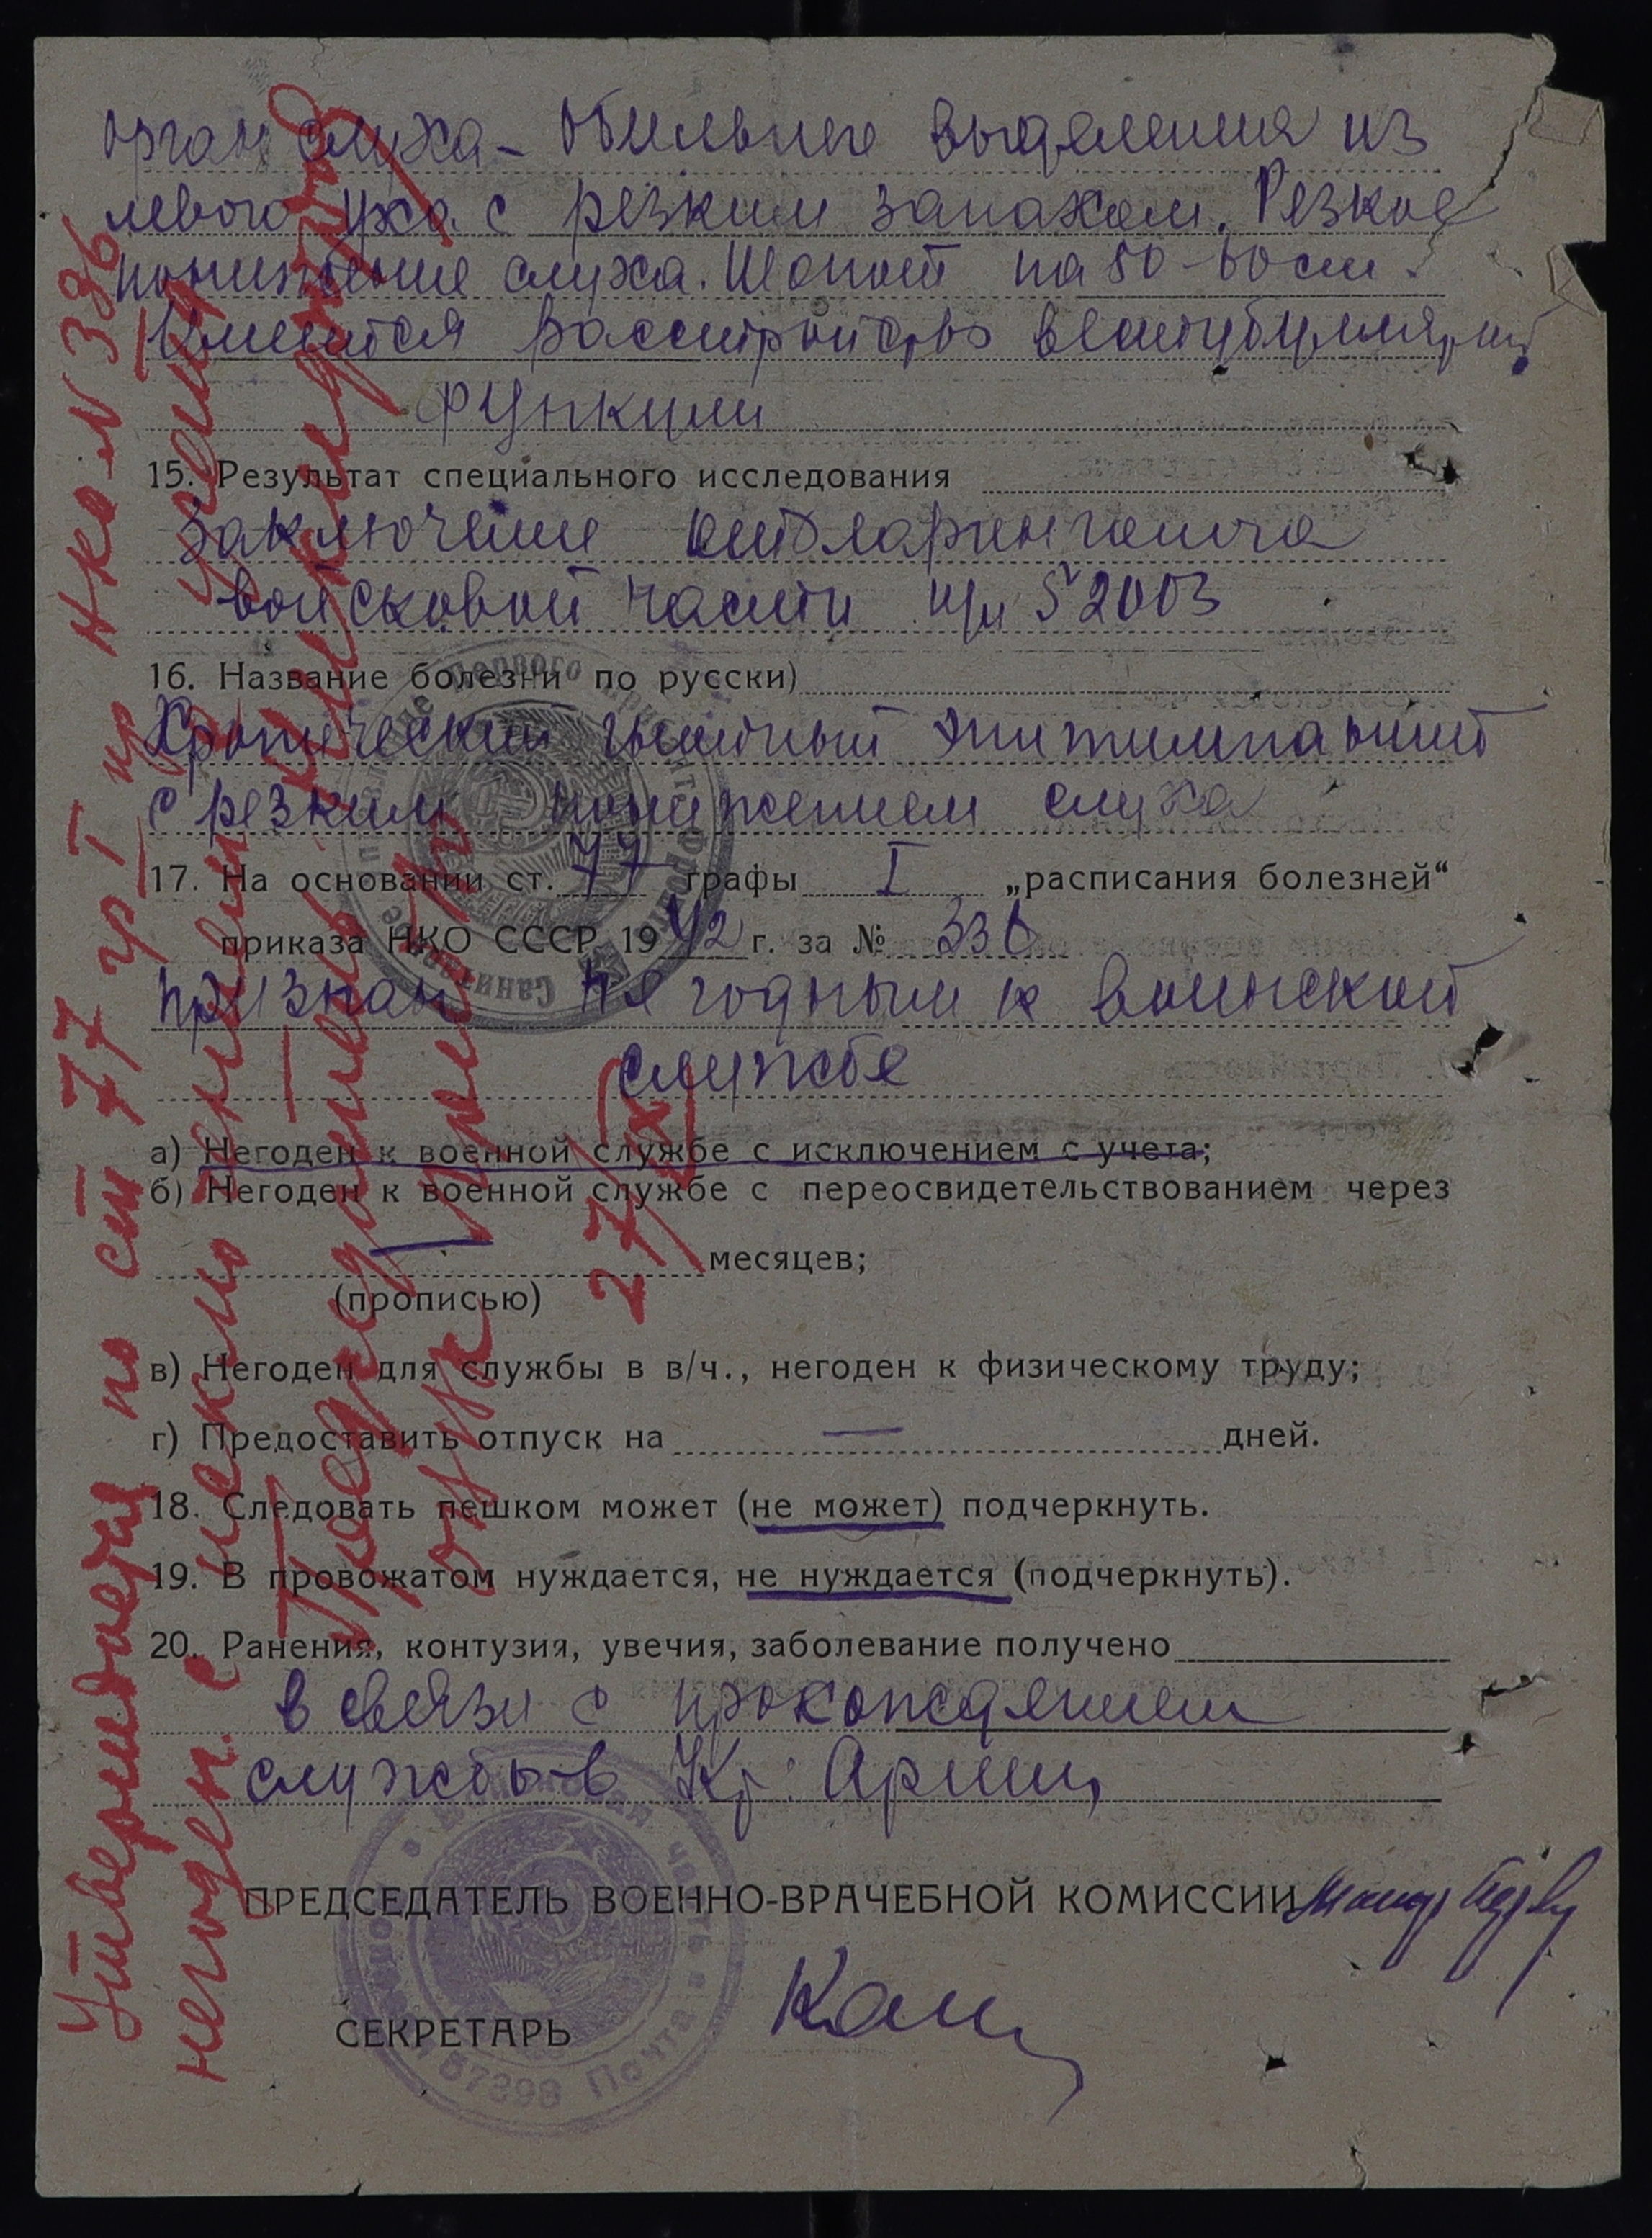 орган слуха – Обильные выделения из
левого уха с резким запахом. Резкое
понижение слуха. Шопот на 50-60 см.
Имеится расстройство вестибулярн
функции
15. Результат специального исследования
Заключение отоларинголога
войсковой части п/п 52003
16. Название болезни по русски)
Хронический гнойный эпитимпанит
с резким понижением слуха
17. На основании ст. 77 графы I „расписания болезней“
приказа НКО СССР 1942 г. за № 336
признан не годным к воинской
службе
а) Негоден к военной службе с исключением с учета;
б) Негоден к военной службе с переосвидетельствованием через
месяцев;
(прописью)
в) Негоден для службы в в/ч., негоден к физическому труду;
г) Предоставить отпуск на — дней.
18. Следовать пешком может (не может) подчеркнуть.
19. В провожатом нуждается, не нуждается (подчеркнуть).
20. Ранения, контузия, увечия, заболевание получено
в связи с прохождением
службы в Кр. Армии
ПРЕДСЕДАТЕЛЬ ВОЕННО-ВРАЧЕБНОЙ КОМИССИИ
СЕКРЕТАРЬ
Утверждается по ст 77 гр I пр НКО N 336
негоден с исключением с учета
Председатель
27/XI
Санитарное Первого Фронта
часть 57398 Почта